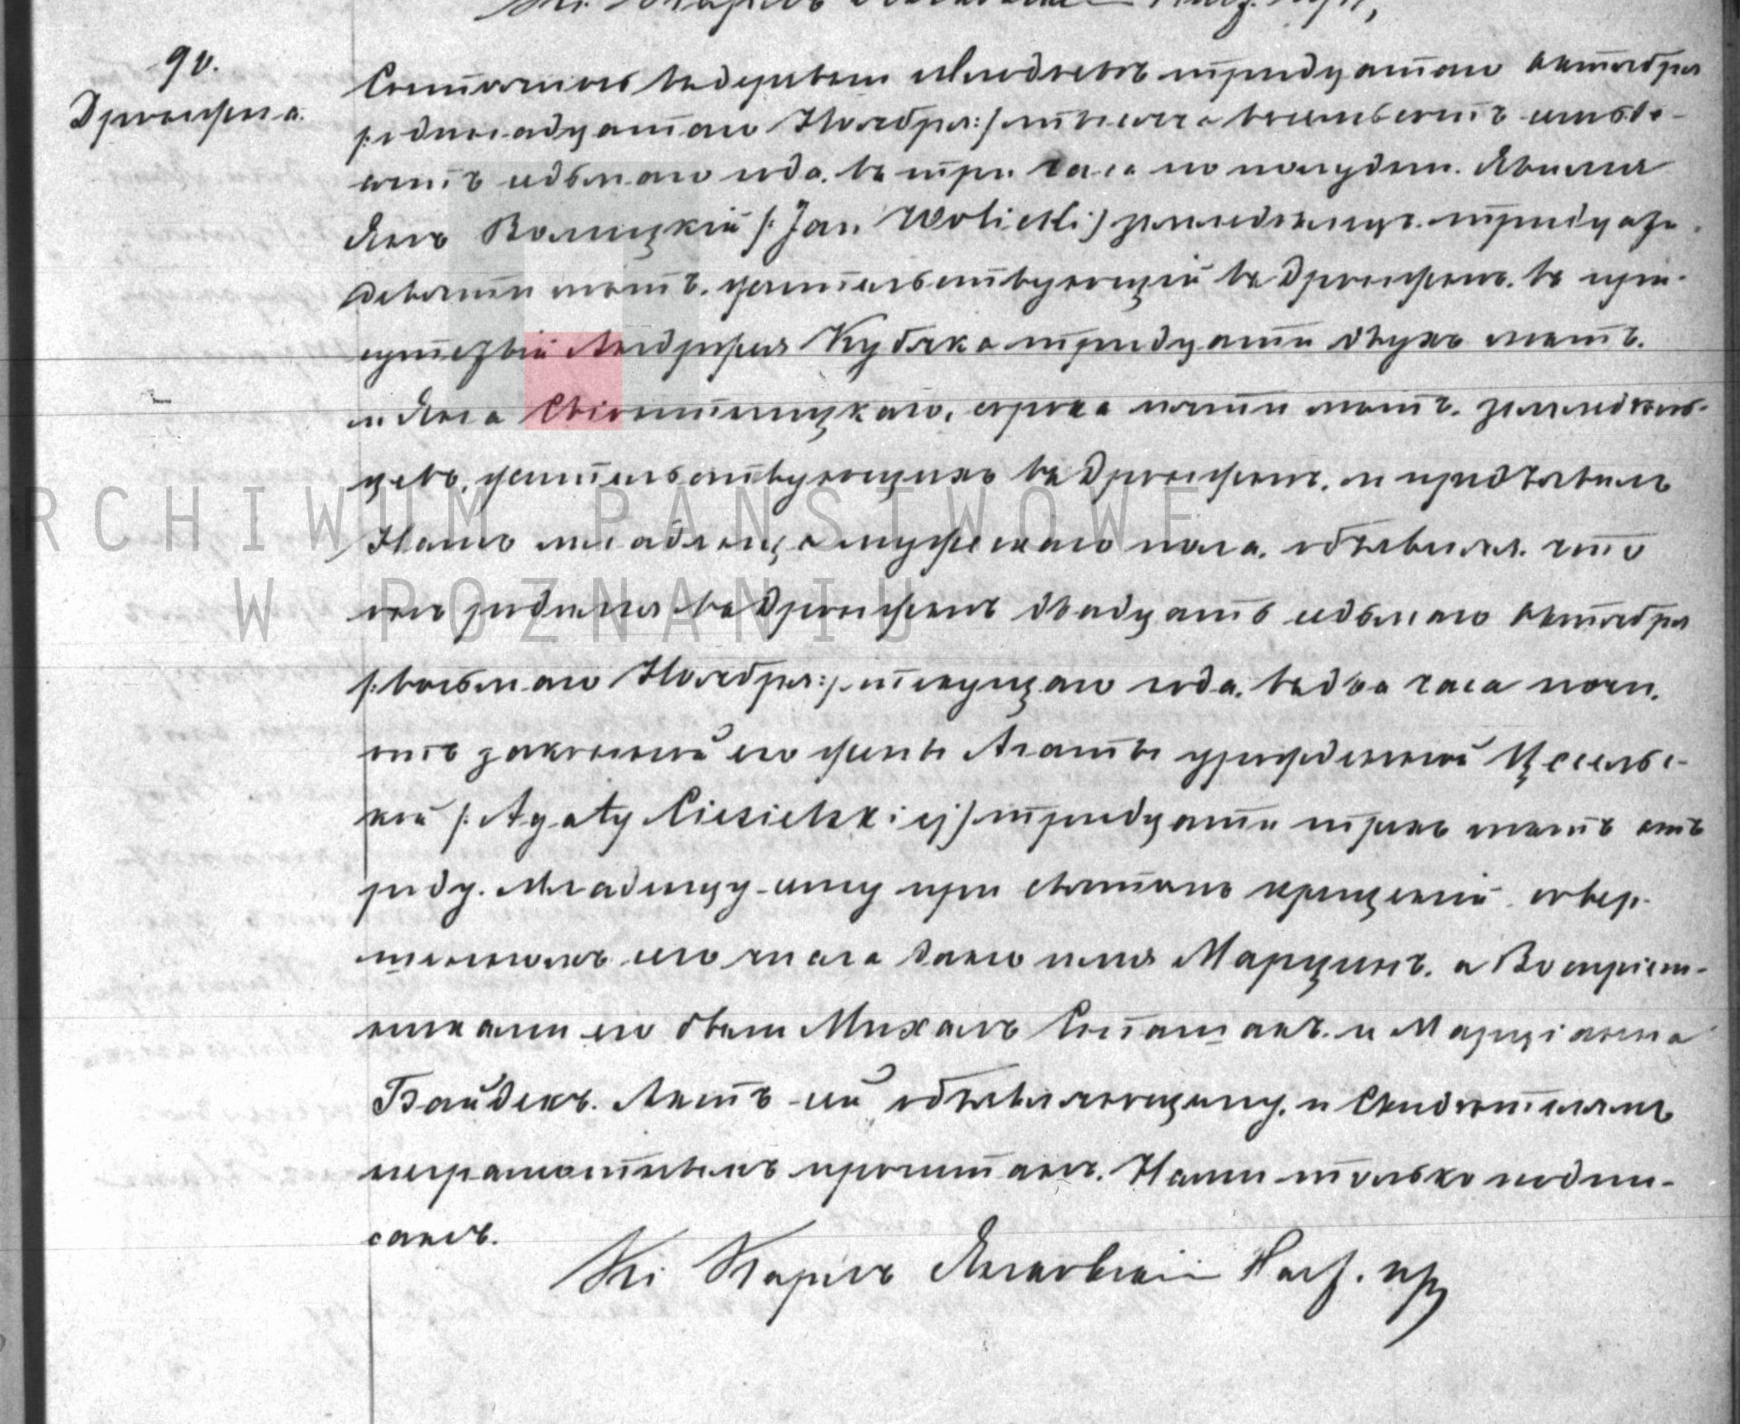 90.
Дрожрена.
Состоялось въ деревни тридцатаго Октября
/:одинадцатаго Ноября:/ тысяча восемьсотъ
седьмаго года, въ три часа по полудни. Явился
Янъ Волицкій /:Jan Wolicki:/ земледѣлецъ, тридцать
девяти лѣтъ, жительствующій въ въ при-
сутствіи Андржея Кубяка тридцати двухъ лѣтъ,
и Яна сорока пяти лѣтъ, земледѣль-
цевъ, жительствующихъ въ и предъявилъ
Намъ младенца мужескаго пола, объявляя, что
онъ родился въ двадцать седьмаго Октября
/:восьмаго Ноября:/ текущаго года, въ два часа ночи,
отъ законной его жены Агаты урожденной Цесельс-
кой /:Agaty Ciesielskiej:/ тридцати трехъ лѣтъ отъ
роду. Младенцу сему при святомъ крещеніи, совер-
шенномъ сего числа дано имя Марцинъ, а Воспріем-
никами его были Михалъ и Марціанна
Байдекъ. Актъ сей объявляющему и Свидѣтелямъ
неграмотнымъ прочитанъ, Нами только подпи-
санъ.
Кс. Карлъ
ARCHIWUM PAŃSTWOWE
W POZNANIU